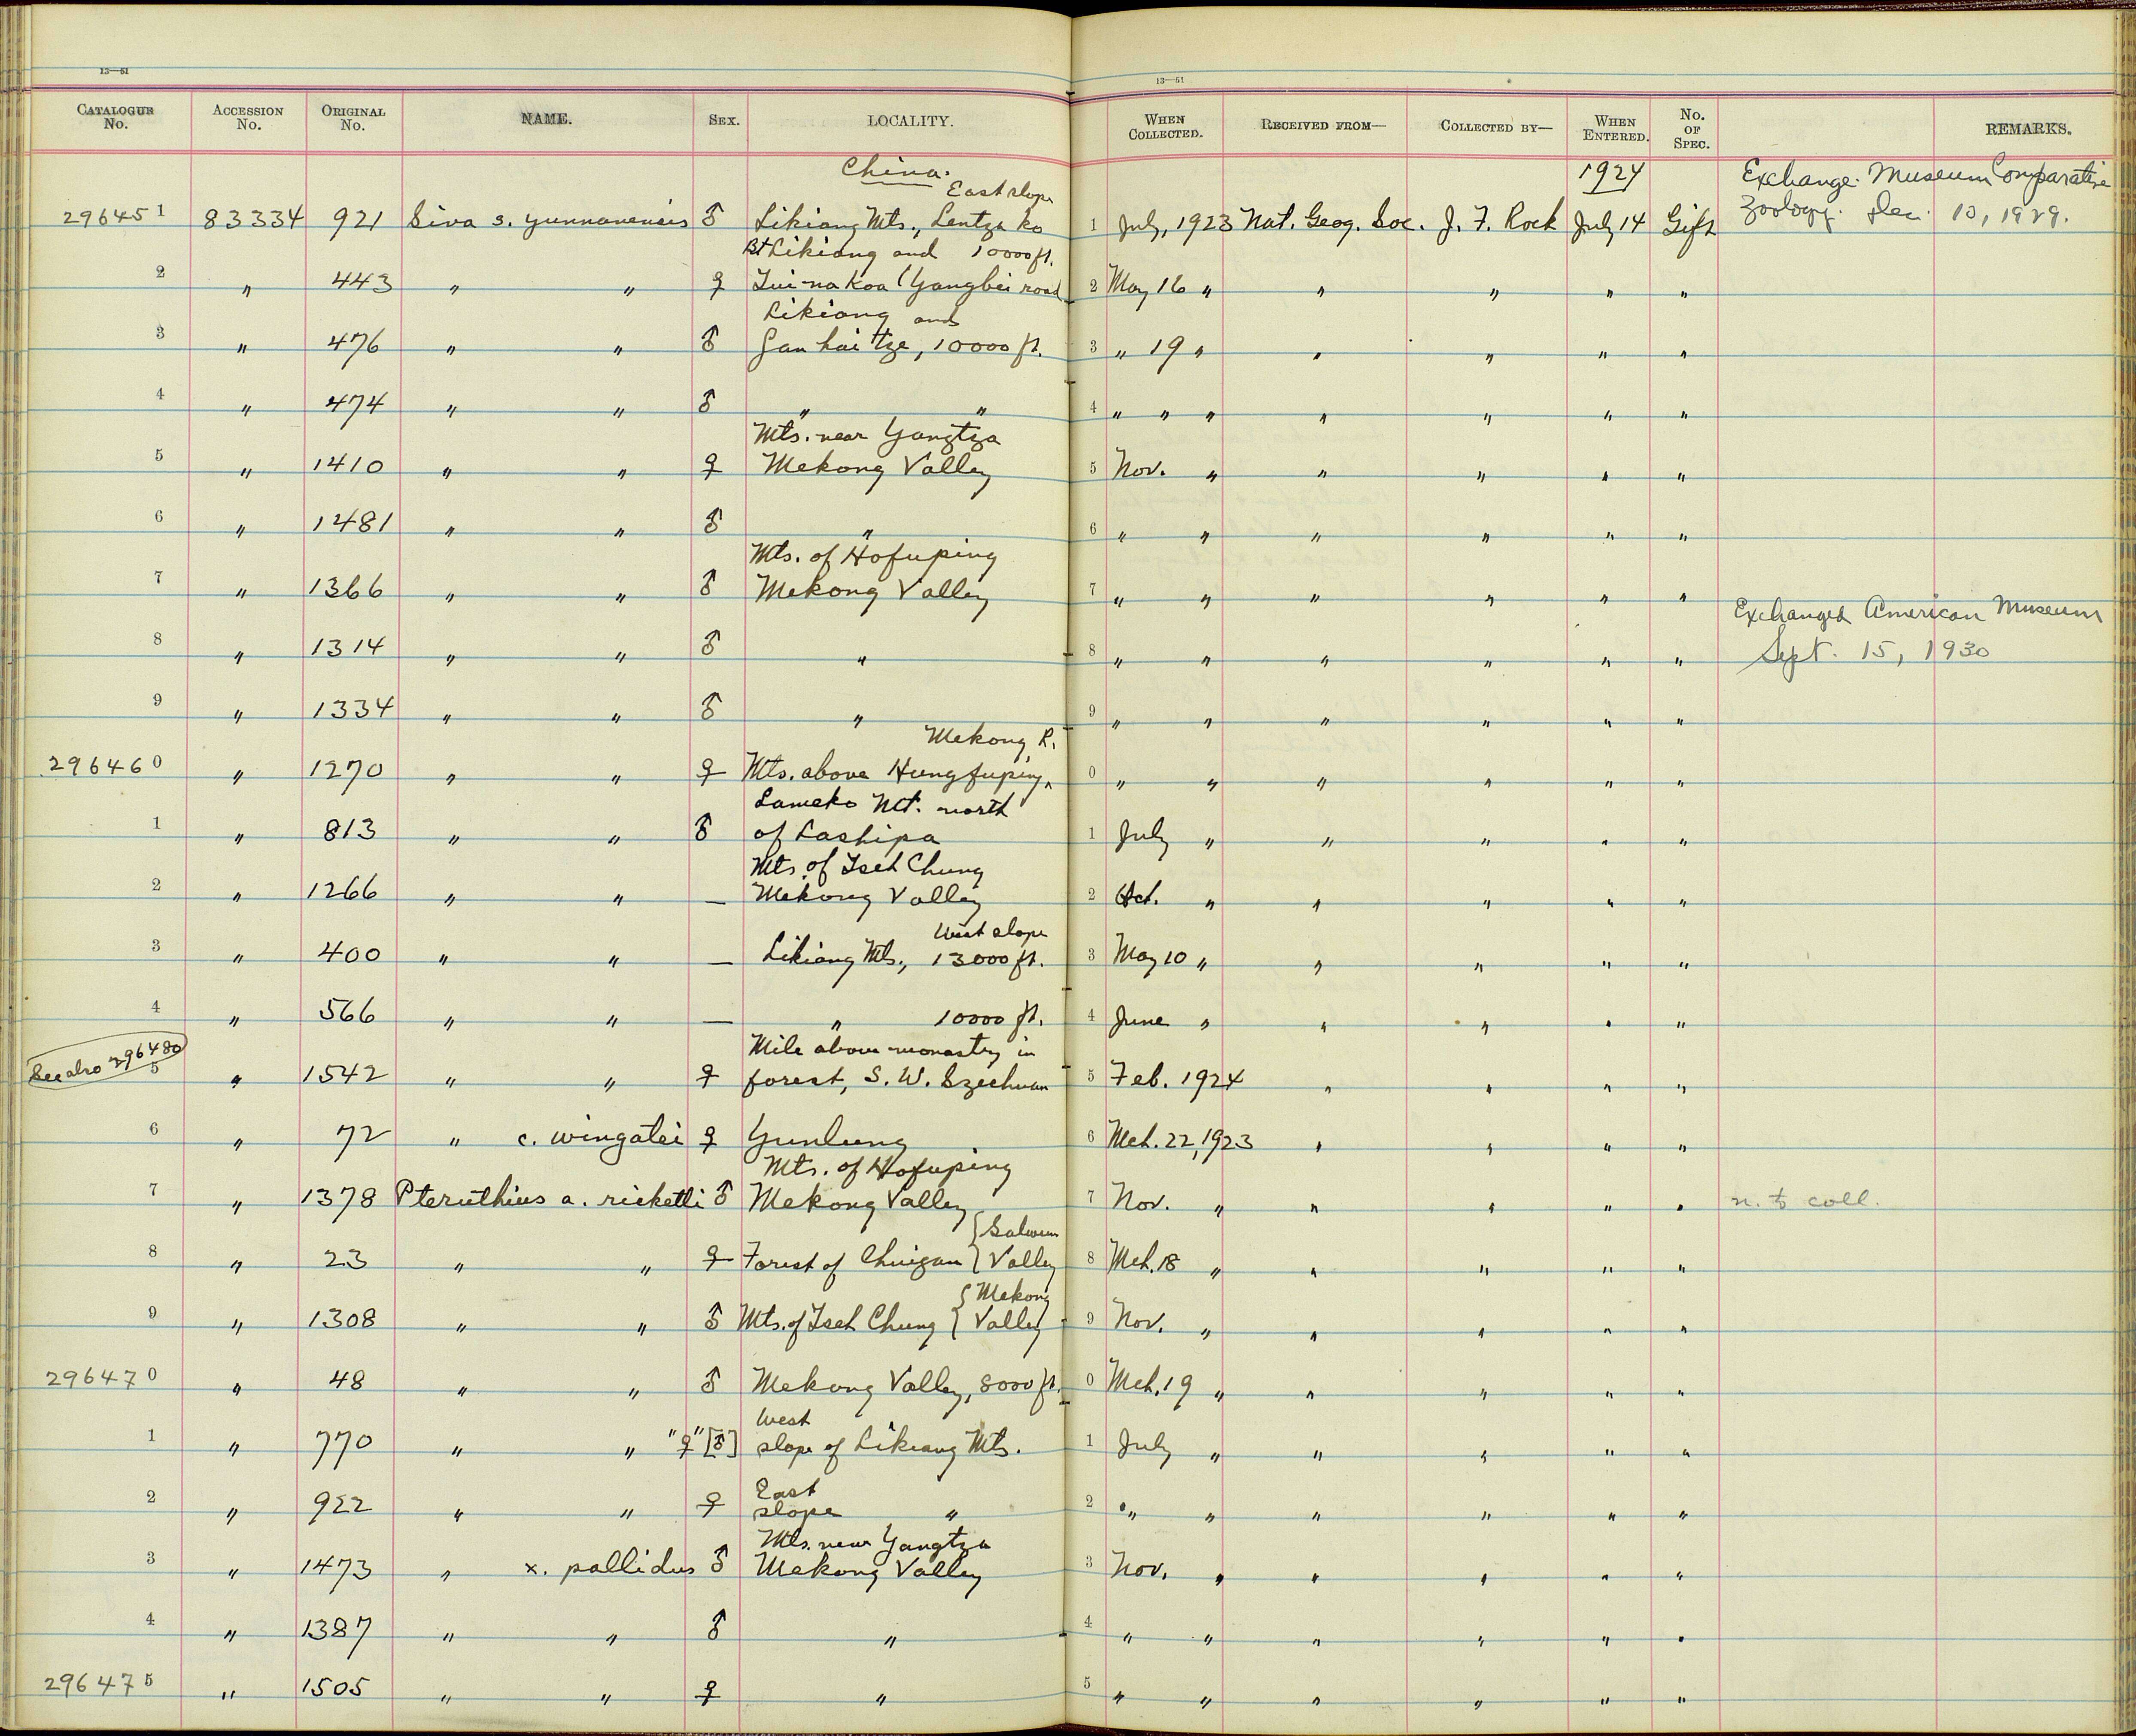 13—51
13—51
CATALOGUE No. ACCESSION No. ORIGINAL No. NAME. SEX. LOCALITY. WHEN COLLECTED. RECEIVED FROM— COLLECTED BY— WHEN ENTERED. No. OF SPEC. REMARKS.
China. 1924 Exchange. Museum Comparative
East slope
296451 83334 921 Siva s. yunnanensis ♂ Likiang Mts., Lentza ko 1 July, 1923 Nat. Geog. Soc. J. F. Rock July 14 Gift Zoology. Dec. 10, 1929.
Bt Likiang and 10000 ft.
2 " 443 " " ♀ Tui-na Koa (Yangbi road 2 May 16 " " " " "
Likiang and
3 " 476 " " ♂ Gan hai tze, 10000 ft. 3 " 19 " " " " "
4 " 474 " " ♂ " " 4 " " " " " " "
Mts. near Yangtza
5 " 1410 " " ♀ Mekong Valley 5 Nov. " " " " "
6 " 1481 " " ♂ " 6 " " " " " "
Mts. of Hofuping
7 " 1366 " " ♂ Mekong Valley 7 " " " " " "
Exchanged American Museum
8 " 1314 " " ♂ " 8 " " " " " " Sept. 15, 1930
9 " 1334 " " ♂ " 9 " " " " " "
Mekong R.
296460 " 1270 " " ♀ Mts. above Hungfuping, 0 " " " " " "
Lameko Mt. north
1 " 813 " " ♂ of Lashipa 1 July " " " " "
Mts. of Tseh Chung
2 " 1266 " " — Mekong Valley 2 Oct. " " " " "
West slope
3 " 400 " " — Likiang Mts., 13000 ft. 3 May 10 " " " " "
4 " 566 " " — " 10000 ft. 4 June " " " " "
See also 296480 Mile above monastery in
5 " 1542 " " ♀ forest, S. W. Szechuan 5 Feb. 1924 " " " "
6 " 72 " c. wingatei ♀ Yunlung 6 Mch. 22, 1923 " " " "
Mts. of Hofuping
7 " 1378 Pteruthius a. ricketti ♂ Mekong Valley 7 Nov. " " " " " n. to coll.
{Salwin
8 " 23 " " ♀ Forest of Chuigan {Valley 8 Mch. 18 " " " " "
{Mekong
9 " 1308 " " ♂ Mts. of Tseh Chung {Valley 9 Nov. " " " " "
296470 " 48 " " ♂ Mekong Valley, 8000 ft. 0 Mch. 19 " " " " "
West
1 " 770 " " "♀" [♂] slope of Likiang Mts. 1 July " " " " "
East
2 " 922 " " ♀ slope " 2 " " " " " "
Mts. near Yangtza
3 " 1473 " x. pallidus ♂ Mekong Valley 3 Nov. " " " " "
4 " 1387 " " ♂ " 4 " " " " " "
296475 " 1505 " " ♀ " 5 " " " " " "